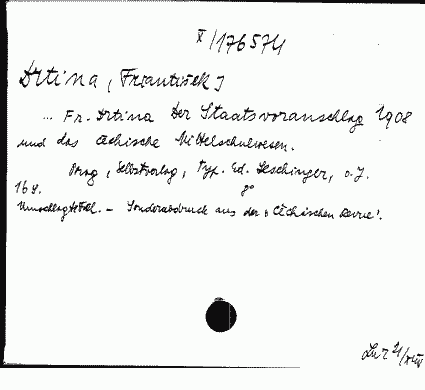 X/176574
Drtina, František]
... Fr. Drtina Der Staatsvoranschlag 1908
und das čechische Mittelschulwesen.
Prag, Selbstverlag, Typ. Ed. Leschinger, o.J.
16 S. 8°
Umschlagtitel. – Sonderabdruck aus der „Čechischen Revue‘.